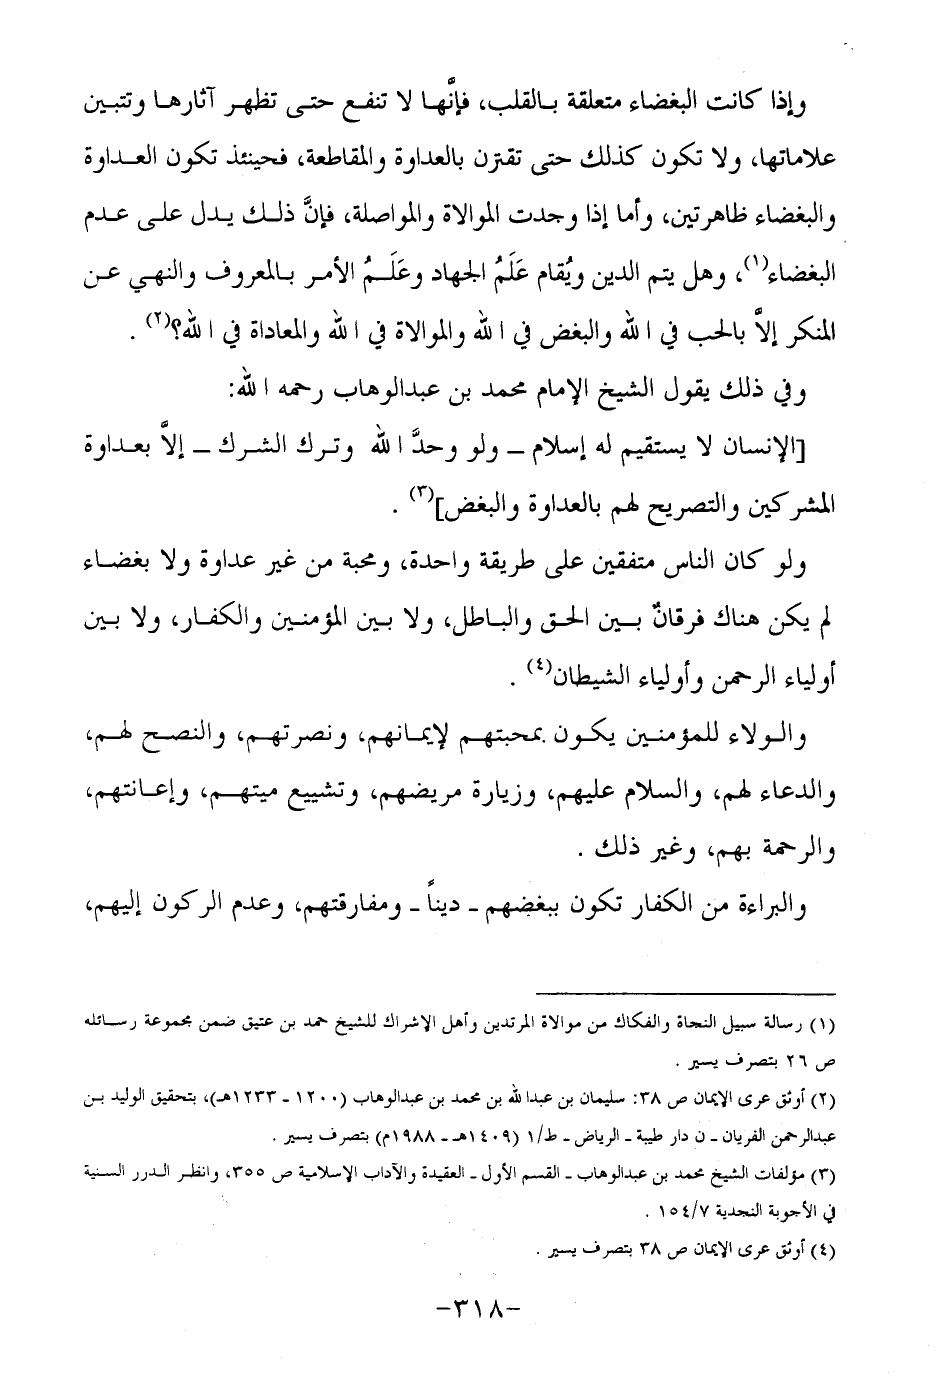 وإذا كانت البغضاء متعلقة بالقلب، فإنَّها لا تنفع حتى تظهر آثارها وتتبين
علاماتها، ولا تكون كذلك حتى تقترن بالعداوة والمقاطعة، فحينئذ تكون العداوة
والبغضاء ظاهرتين، وأما إذا وجدت الموالاة والمواصلة، فإنَّ ذلك يدل على عدم
البغضاء(١)، وهل يتم الدين ويُقام عَلَمُ الجهاد وعَلَمُ الأمر بالمعروف والنهي عن
المنكر إلاَّ بالحب في الله والبغض في الله والموالاة في الله والمعاداة في الله؟(٢) .
وفي ذلك يقول الشيخ الإمام محمد بن عبدالوهاب رحمه الله:
[الإنسان لا يستقيم له إسلام ـ ولو وحدَّ الله وترك الشرك ـ إلاَّ بعداوة
المشركين والتصريح لهم بالعداوة والبغض](٣) .
ولو كان الناس متفقين على طريقة واحدة، ومحبة من غير عداوة ولا بغضاء
لم يكن هناك فرقانٌ بين الحق والباطل، ولا بين المؤمنين والكفار، ولا بين
أولياء الرحمن وأولياء الشيطان(٤) .
والولاء للمؤمنين يكون بمحبتهم لإيمانهم، ونصرتهم، والنصح لهم،
والدعاء لهم، والسلام عليهم، وزيارة مريضهم، وتشييع ميتهم، وإعانتهم،
والرحمة بهم، وغير ذلك .
والبراءة من الكفار تكون ببغضهم ـ ديناً ـ ومفارقتهم، وعدم الركون إليهم،
(١) رسالة سبيل النجاة والفكاك من موالاة المرتدين وأهل الإشراك للشيخ حمد بن عتيق ضمن مجموعة رسائله
ص ٢٦ بتصرف يسير .
(٢) أوثق عرى الإيمان ص ٣٨: سليمان بن عبدالله بن محمد بن عبدالوهاب (١٢٠٠ ـ ١٢٣٣هـ)، بتحقيق الوليد بن
عبدالرحمن الفريان ـ ن دار طيبة ـ الرياض ـ ط/١ (١٤٠٩هـ ـ ١٩٨٨م) بتصرف يسير .
(٣) مؤلفات الشيخ محمد بن عبدالوهاب ـ القسم الأول ـ العقيدة والآداب الإسلامية ص ٣٥٥، وانظر الدرر السنية
في الأجوبة النجدية ١٥٤/٧ .
(٤) أوثق عرى الإيمان ص ٣٨ بتصرف يسير .
-٣١٨-